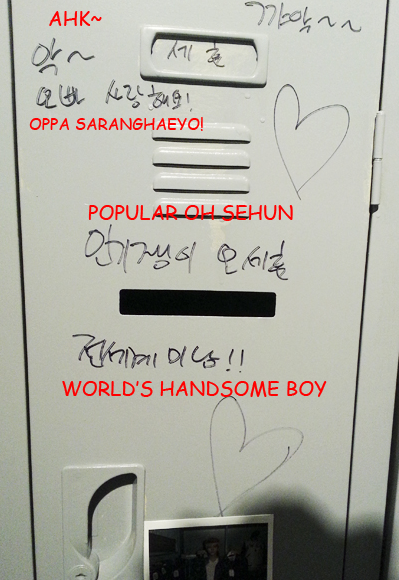 AHK~
꺄악~~
악~
세훈
오빠 사랑해요!
OPPA SARANGHAEYO!
POPULAR OH SEHUN
인기쟁이 오세훈
전세계 미남!!
WORLD'S HANDSOME BOY